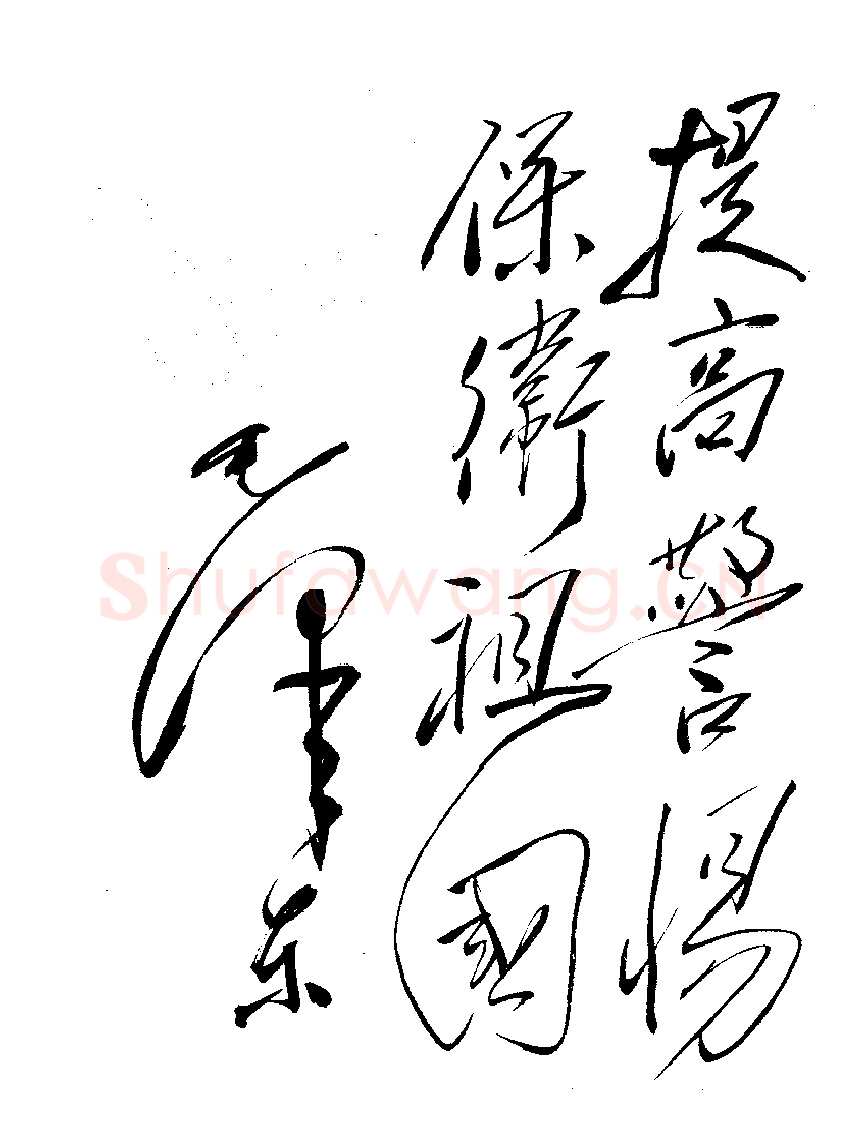 提高警惕
保衛祖國
毛澤东
Shufawang.CN